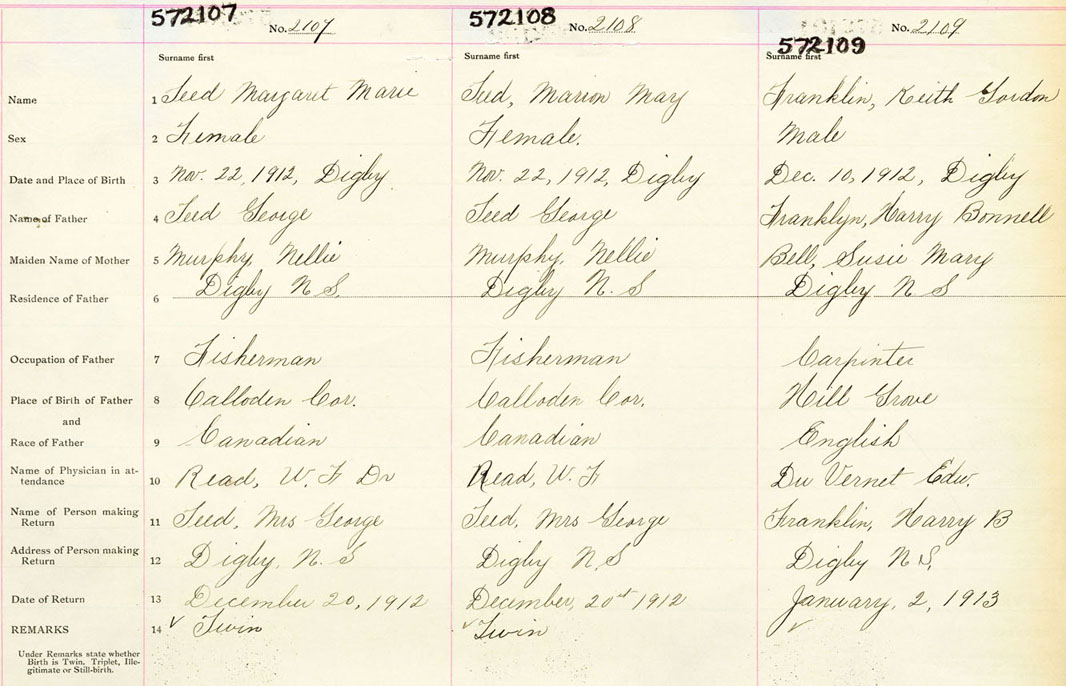 572107 No. 2107 572108 No. 2108 572109 No. 2109
Surname first Surname first Surname first
Name 1 Seed Margaret Marie Seed, Marion May Franklin, Keith Gordon
Sex 2 Female Female. Male
Date and Place of Birth 3 Nov. 22, 1912, Digby Nov. 22, 1912, Digby Dec. 10, 1912, Digby
Name of Father 4 Seed George Seed George Franklyn, Harry Bonnell
Maiden Name of Mother 5 Murphy, Nellie Murphy, Nellie Bell, Susie Mary
Residence of Father 6 Digby N S. Digby N. S Digby N S
Occupation of Father 7 Fisherman Fisherman Carpinter
Place of Birth of Father 8 Calloden Cor. Calloden Cor. Hill Grove
and
Race of Father 9 Canadian Canadian English
Name of Physician in at-
tendance 10 Read, W. F Dr Read, W. F Du Vernet Edw.
Name of Person making
Return 11 Seed, Mrs George Seed, Mrs George Franklin, Harry B
Address of Person making
Return 12 Digby, N. S Digby N S Digby N S,
Date of Return 13 December 20, 1912 December, 20st 1912 January, 2, 1913
REMARKS 14 ✓ Twin ✓ Twin ✓
Under Remarks state whether
Birth is Twin, Triplet, Ille-
gitimate or Still-birth.